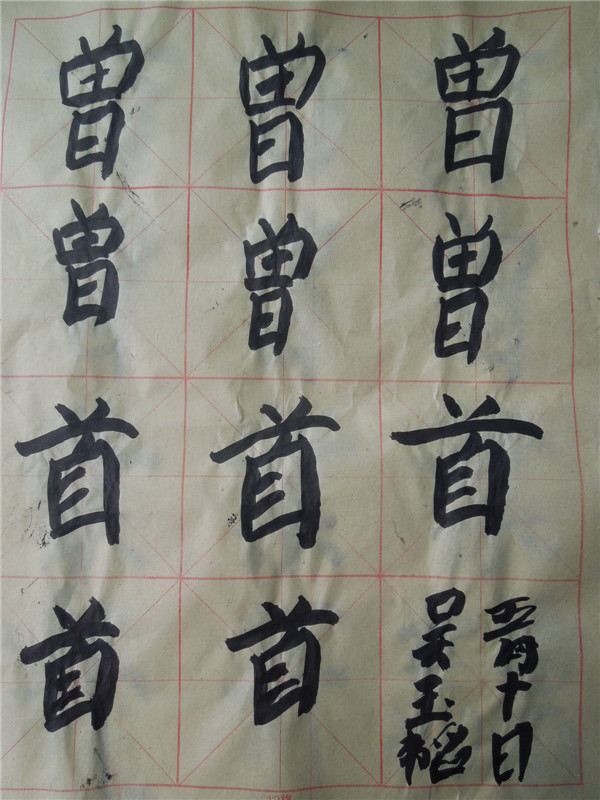 曾曾曾
曾曾曾
首首首
首首
五月十日
吴玉韬